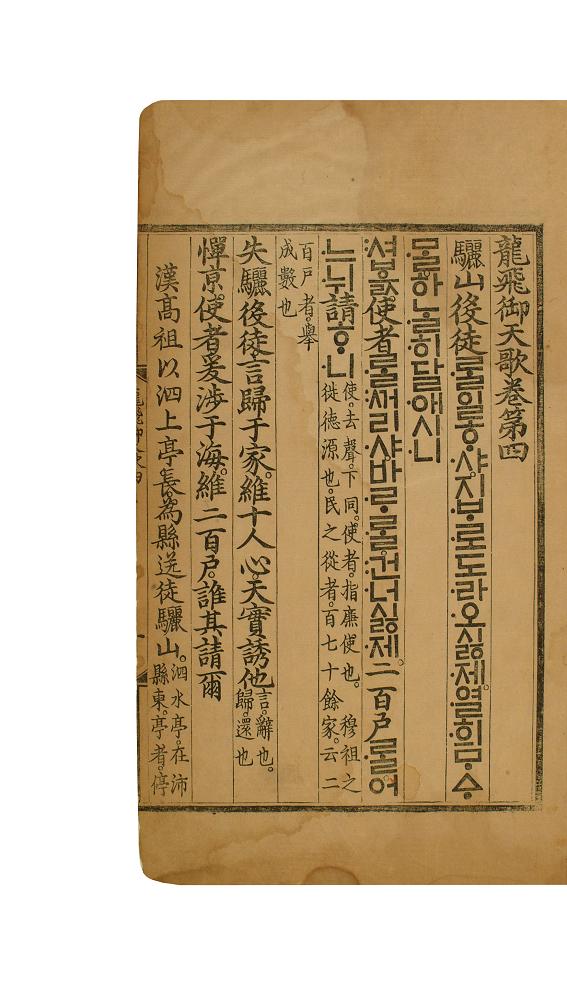 龍飛御天歌卷第四
驪山役徒ᄅᆞᆯ일ᄒᆞ샤지ᄫᅳ로도라오싫제。열희ᄆᆞᅀᆞ
ᄆᆞᆯ하ᄂᆞᆯ히달애시니
셔ᄫᅳᆳ使者ᄅᆞᆯᄭᅥ리샤바ᄅᆞᄅᆞᆯ건너싫제。二百戶ᄅᆞᆯ어
느뉘請ᄒᆞ니
使。去聲。下同。使者。指廉使也。穆祖之
徙德源也。民之從者。百七十餘家。云二
百戶者。擧
成數也
失驪役徒。言歸于家。維十人心。天實誘他
言。辭也。
歸。還也
憚京使者。爰涉于海。維二百戶。誰其請爾
漢高祖以泗上亭長。為縣送徒驪山。
泗水亭。在沛
縣東。亭者。停